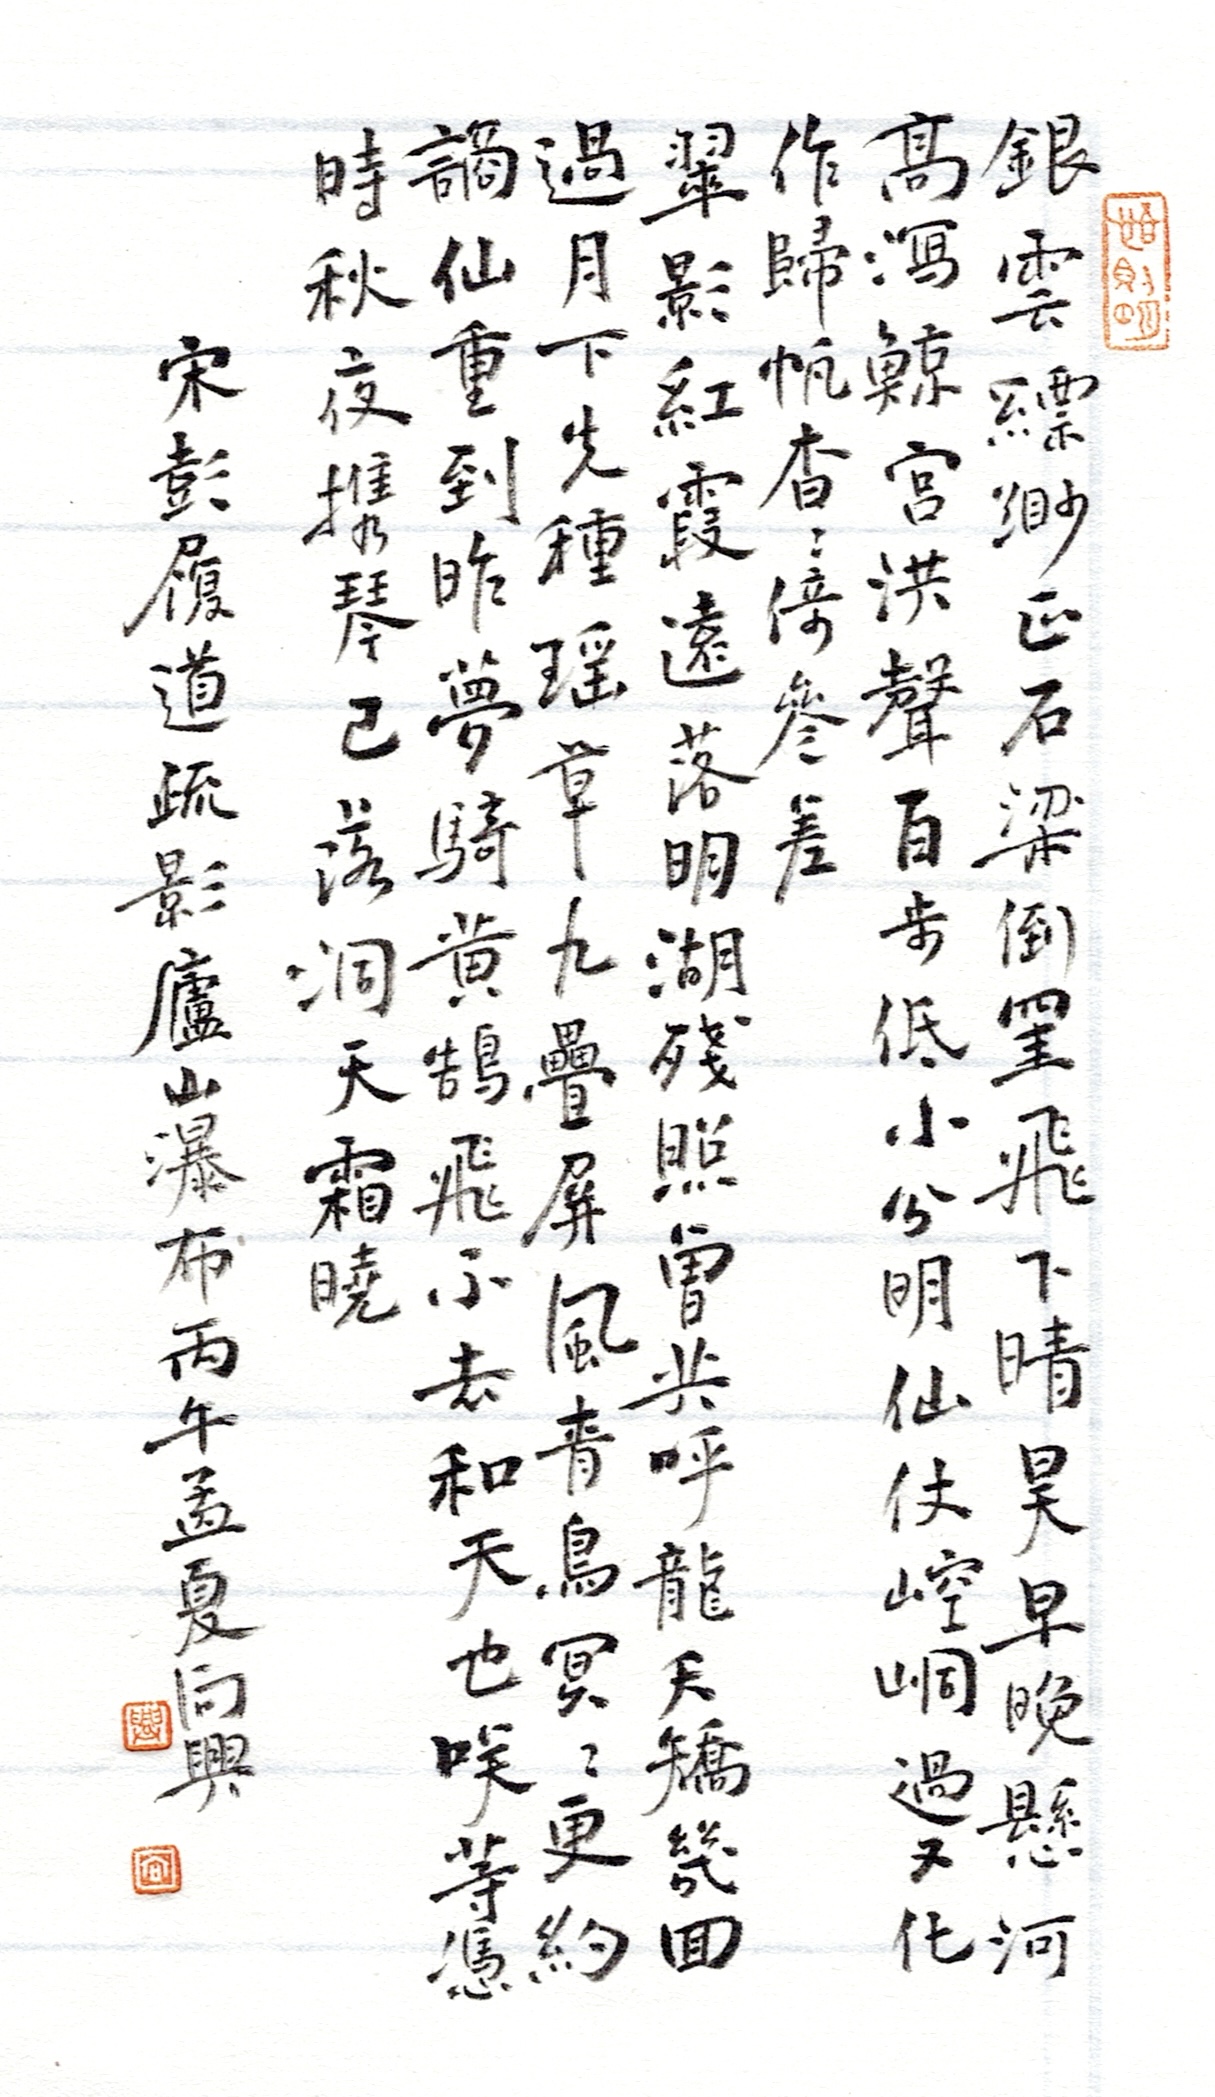 銀雲縹緲正石梁倒罣飛下晴昊早晚懸河
高瀉鯨宮洪聲百步低小分明仙仗崆峒過又化
作歸帆杳〻倚參差
翠影紅霞遠落明湖殘照曾共呼龍夭矯幾回
過月下先種瑶草九疊屏風青鳥冥〻更約
謫仙重到昨夢騎黄鵠飛不去和天也咲等慿
時秋夜携琴已落洞天霜曉
宋彭履道疏影廬山瀑布丙午孟夏向興
興
向